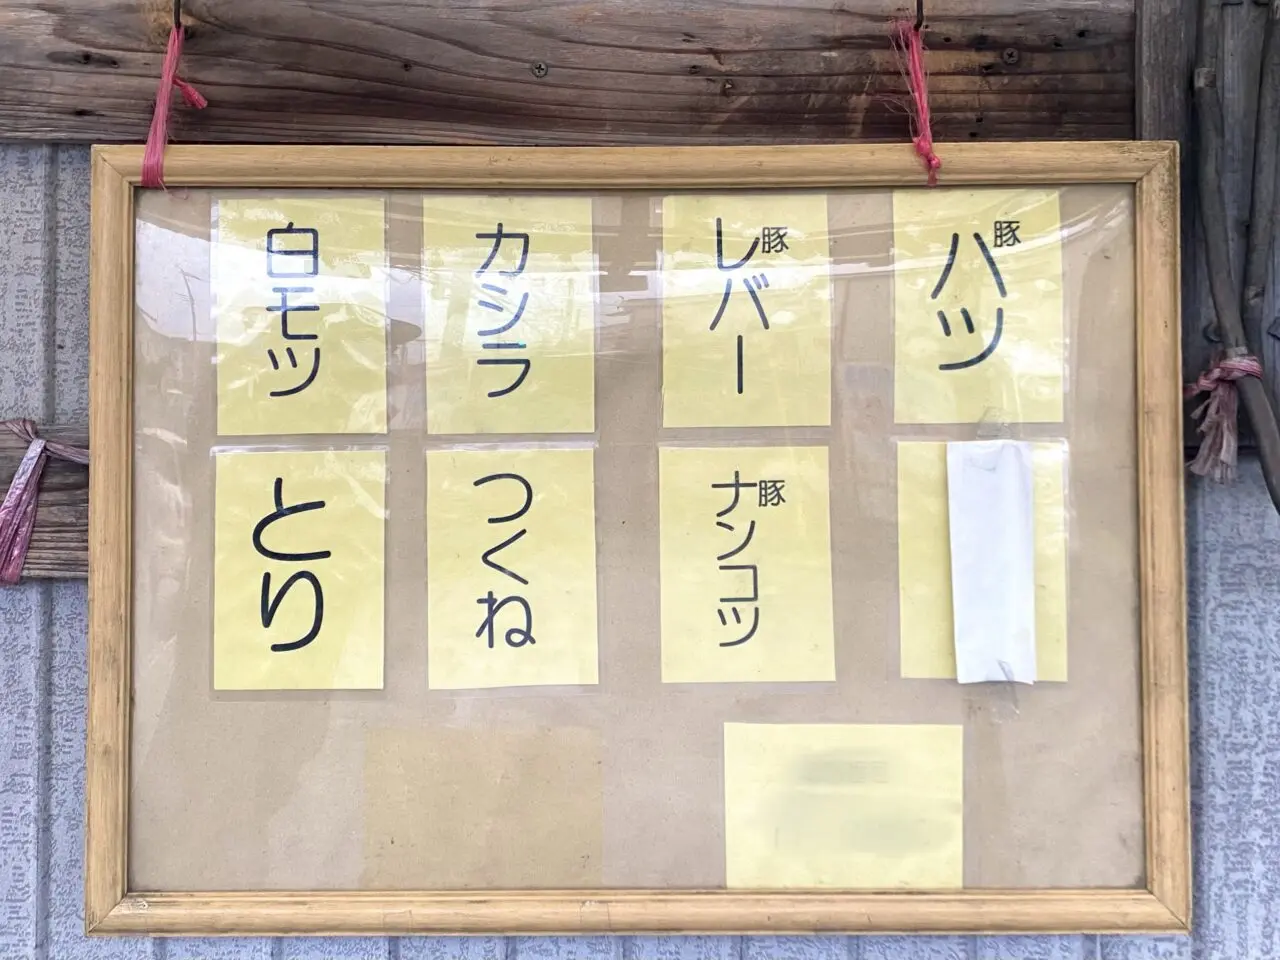 豚ハツ
豚レバー
カシラ
白モツ
豚ナンコツ
つくね
とり